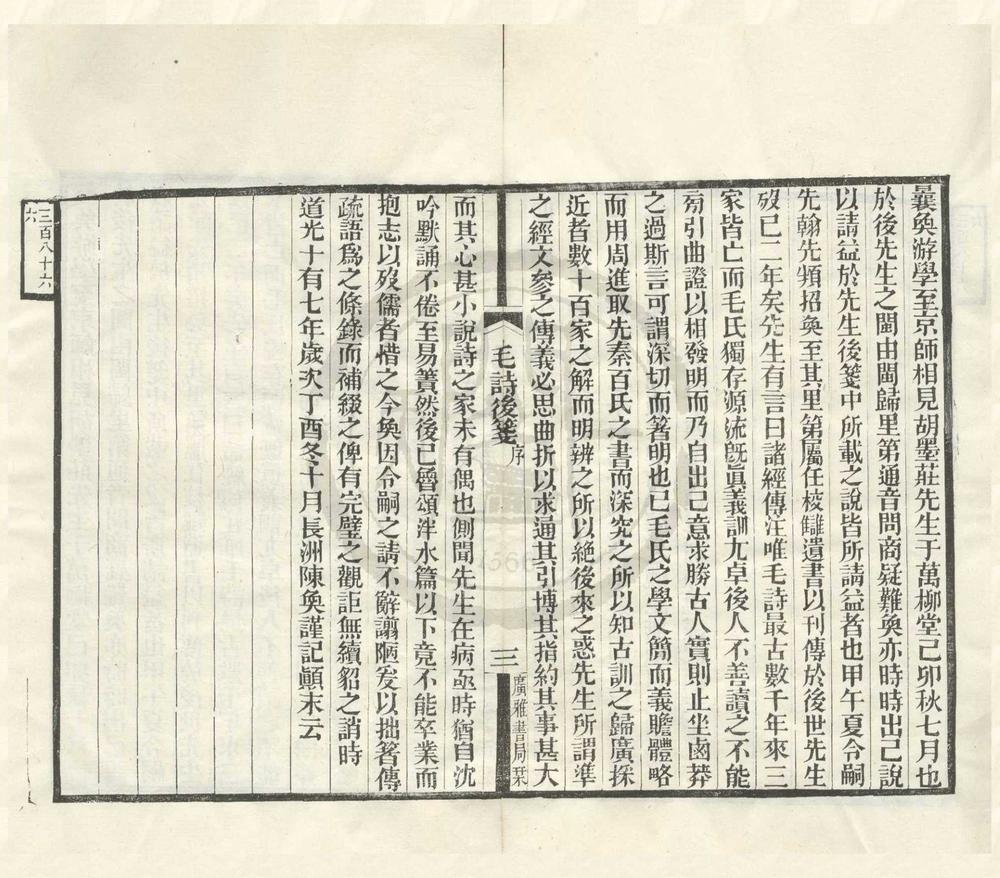 曩奐游學至京師相見胡墨莊先生于萬柳堂己卯秋七月也
於後先生之閩由閩歸里第通音問商疑難奐亦時時出己說
以請益於先生後箋中所載之說皆所請益者也甲午夏令嗣
先翰先頖招奐至其里第屬任校讎遺書以刊傳於後世先生
歿已二年矣先生有言曰諸經傳注唯毛詩最古數千年來三
家皆亡而毛氏獨存源流旣眞義訓尤卓後人不善讀之不能
㫄引曲證以相發明而乃自出己意求勝古人實則止坐鹵莽
之過斯言可謂深切而箸明也已毛氏之學文簡而義贍體略
而用周進取先秦百氏之書而深究之所以知古訓之歸廣採
近者數十百家之解而明辨之所以絶後來之惑先生所謂準
之經文參之傳義必思曲折以求通其引博其指約其事甚大
毛詩後箋 序
三
廣雅書局栞
而其心甚小說詩之家未有偶也側聞先生在病亟時猶自沈
吟默誦不倦至易簀然後已魯頌泮水篇以下竟不能卒業而
抱志以歿儒者惜之今奐因令嗣之請不辭譾陋爰以拙箸傳
疏語爲之條錄而補綴之俾有完璧之觀詎無續貂之誚時
道光十有七年歲次丁酉冬十月長洲陳奐謹記顚末云
三百八十六
六